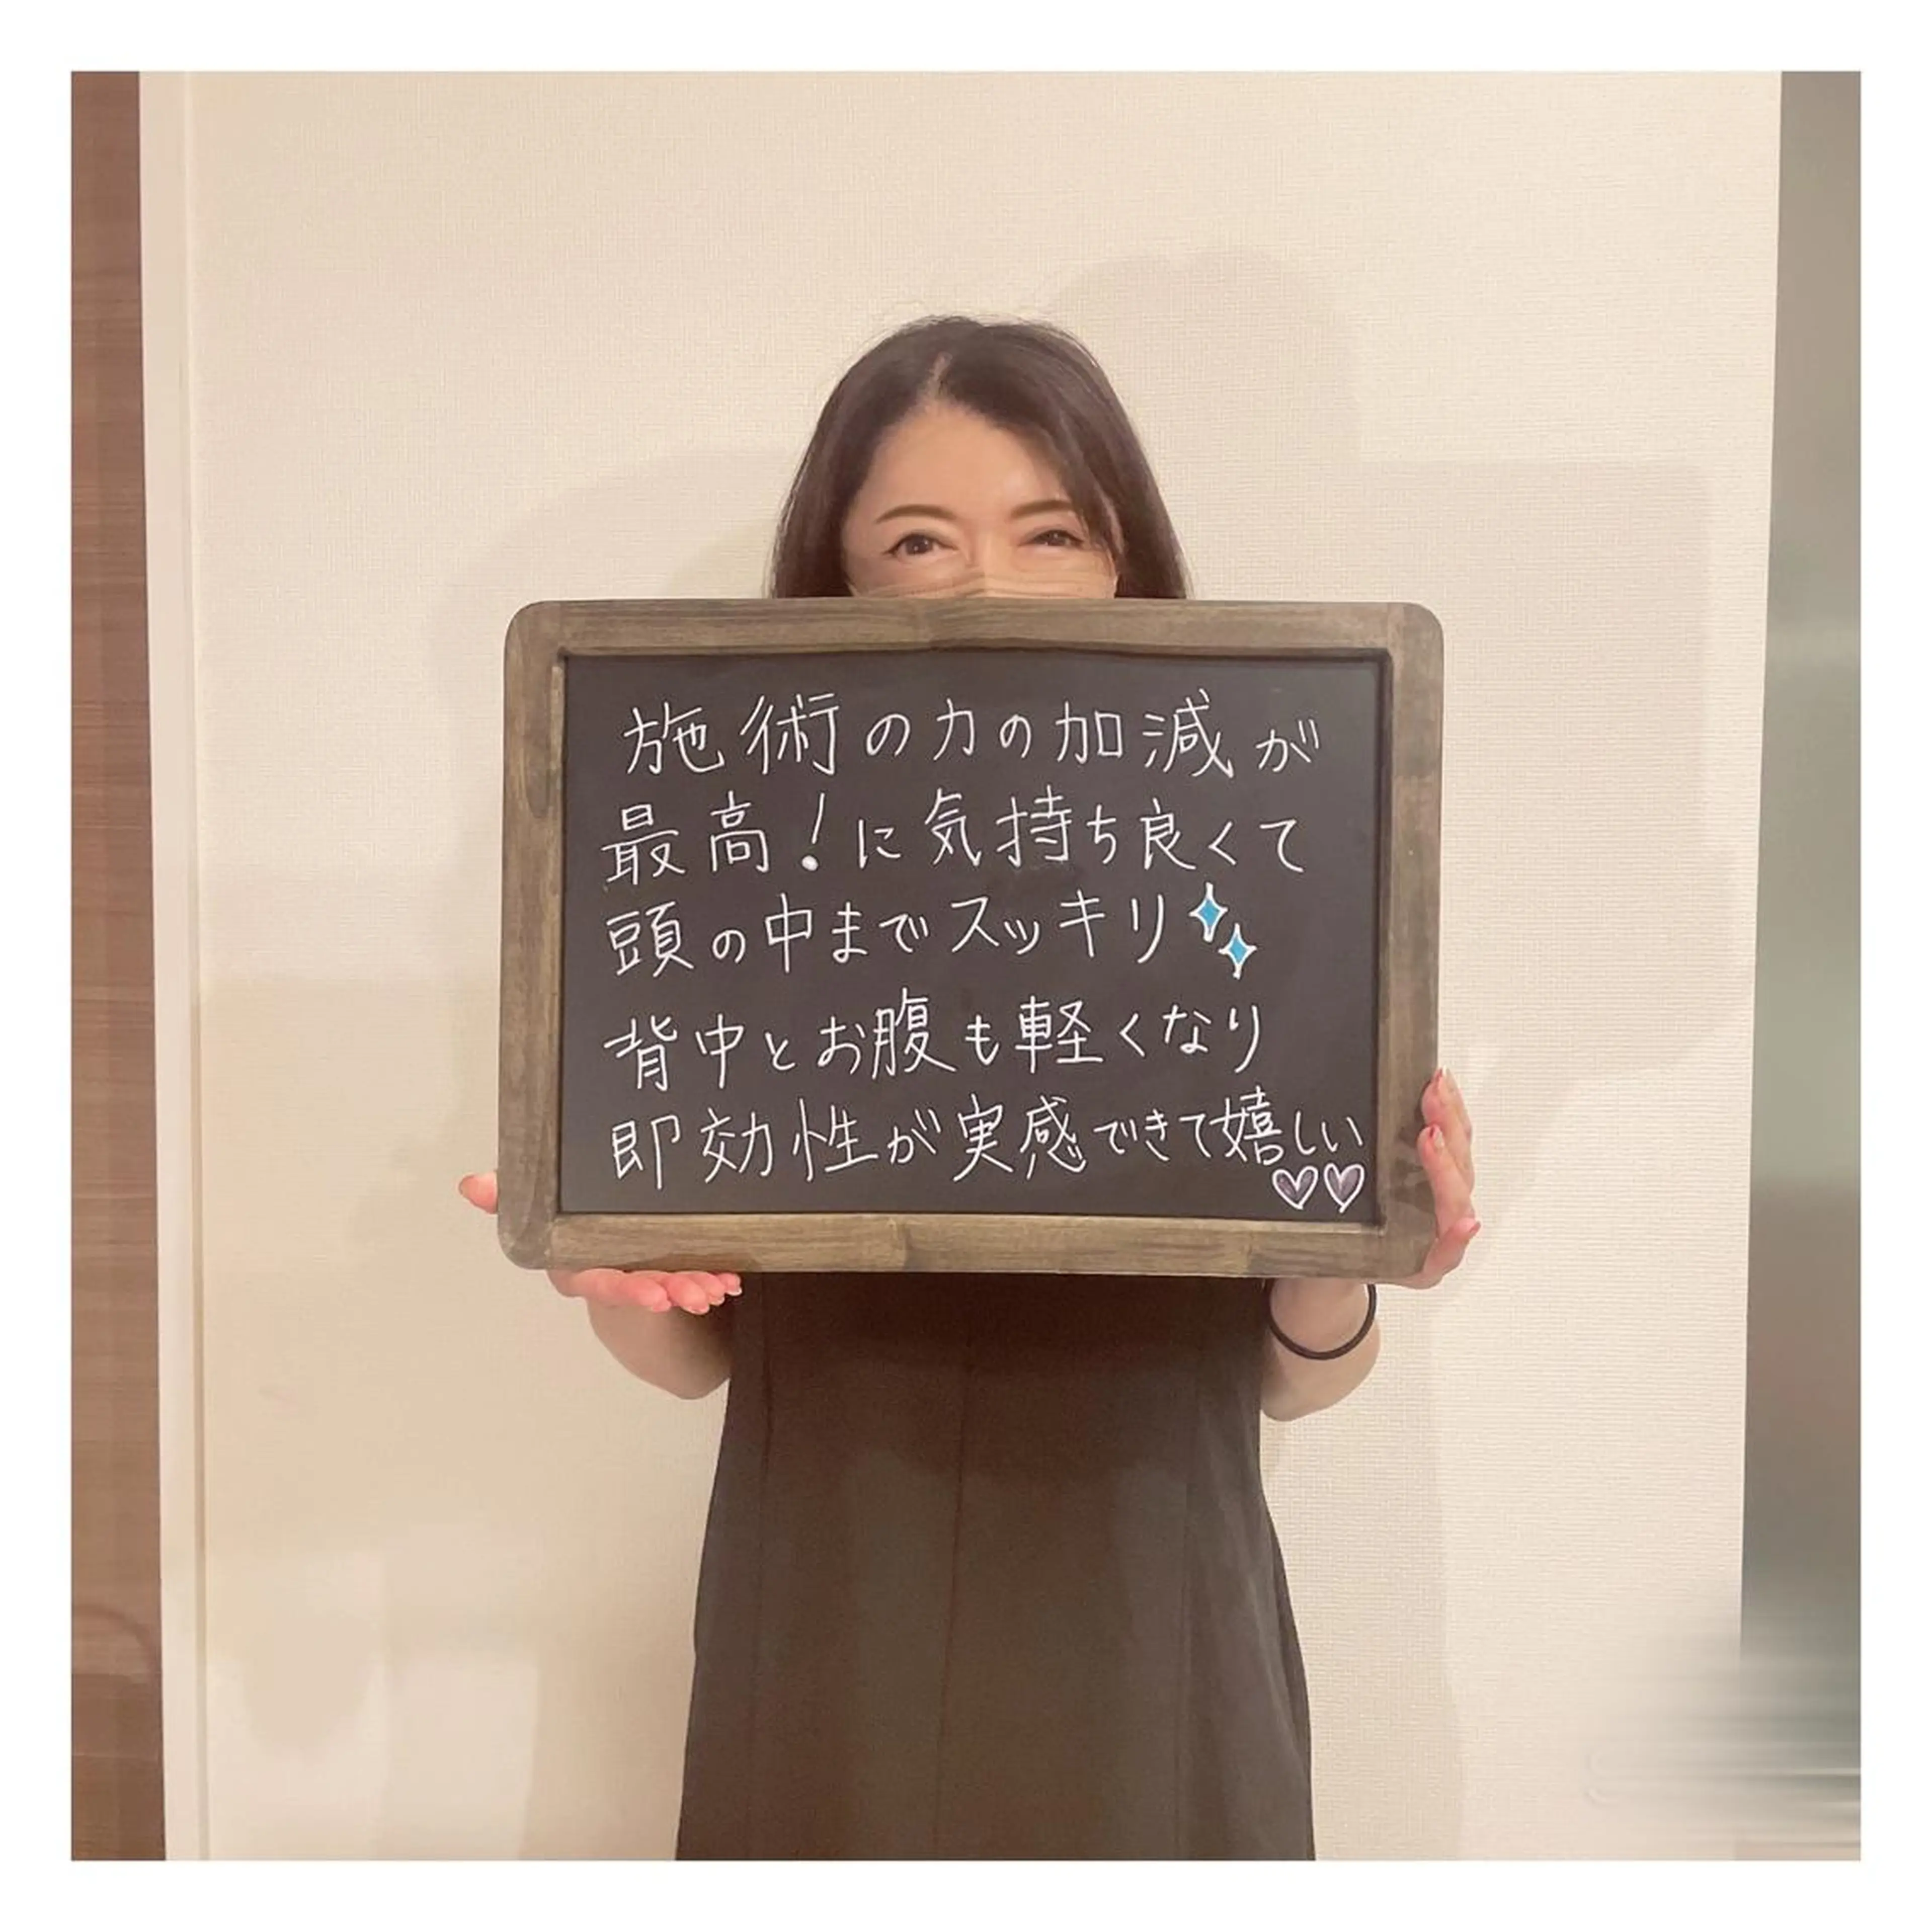 施術の力の加減が
最高!に気持ち良くて
頭の中までスッキリ
背中とお腹も軽くなり
即効性が実感できて嬉しい